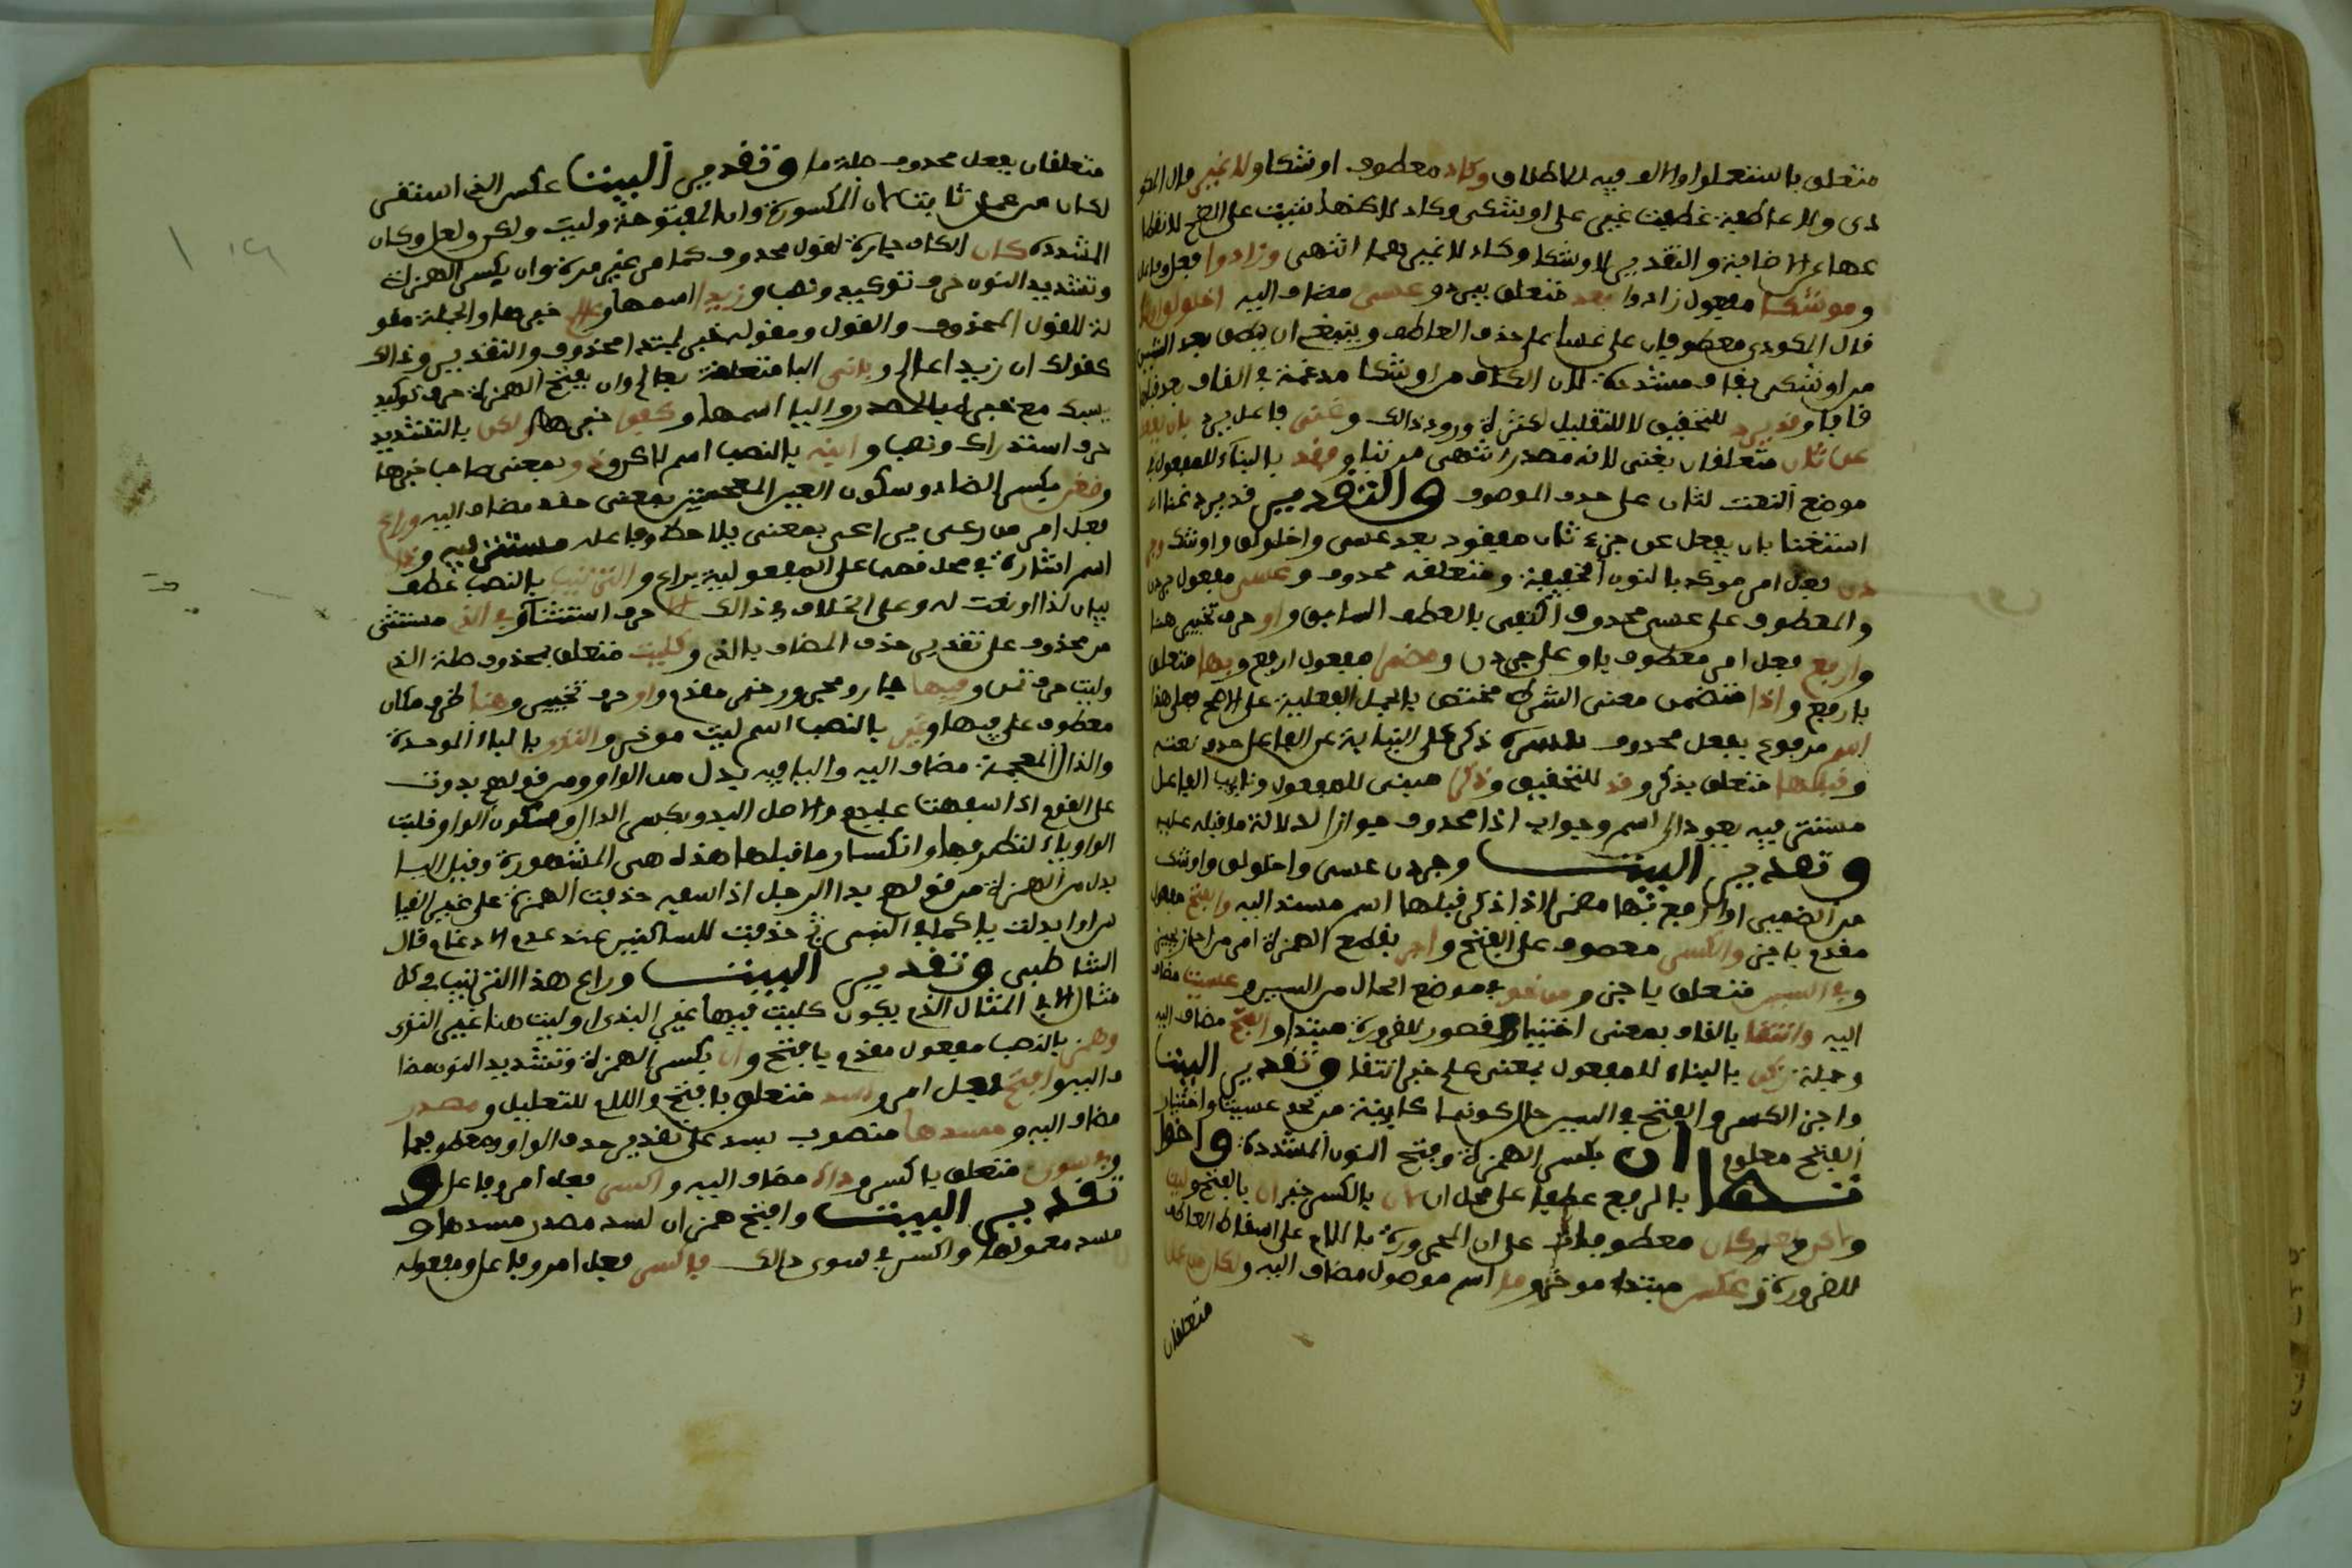 متعلق باستعملوا والالف فيه للاطلاق وكاد معطوف اوشكا ولا غير قال المكو
دى ولا عاطفة عطفت غير على اوشكى وكاد لاكنها بنيت على الضم لانقطا
عها عن الاضافة والتقدير لاوشكا وكاد لا غيرهما انتهى وزادوا فعل وفاعل
وموشكا مفعول زادوا بعد متعلق بيرد وعسى مضاف اليه اخلولق
قال المكودى معطوفان على عسا على حذف العاطف وينبغى ان ينطق بعد الشين
من اوشكى بقاف مشددة لان الكاف من اوشكا مدغمة فى القاف بعد قلبها
قافا وقد يرد للتحقيق لا للتقليل لكثرة ورود ذالك وغنى فاعل يرد بان يفعل
عن ثان متعلقان بغنى لانه مصدر انتهى مرتبا وفقد بالبناء للمفعول فى
موضع النعت لثان على حذف الموصوف والتقدير قد يرد غنا اى
استغنا بان يفعل عن جزء ثان مفقود بعد عسى واخلولق واوشك وجر
دن فعل امر موكد بالنون الخفيفة ومتعلقه محذوف وعسى مفعول جردن
والمعطوف على عسى محذوف اكتفى بالعطف السابق واو حرف تخيير هنا
وارفع فعل امر معطوف باو على جردن ومضمرا مفعول ارفع وبها متعلق
بارفع واذا متضمن معنى الشرط مختص بالجمل الفعلية على الاصح فعلى هذا
اسم مرفوع بفعل محذوف يفسره ذكر على النيابة عن الفاعل حذف نعته
وقبلها متعلق بذكر وقد للتحقيق وذكرا مبنى للمفعول ونايب الفاعل
مستتر فيه يعود الى اسم وجواب اذا محذوف جوازا لدلالة ما قبله عليه
وتقدير البيت وجردن عسى واخلولق واوشك
من الضمير او ارفع بها مضمرا اذا ذكر قبلها اسم مسند اليه والفتح مفعول
مقدم باجز والكسر معطوف على الفتح واجز بقطع الهمزة امر من اجاز يجيز
وفى السين متعلق باجز ومن نحو فى موضع الحال من السين وعسيت مضاف
اليه وانتقا بالقاف بمعنى اختيار وقصور للضرورة مبتدا والفتح مضاف اليه
وجملة زكن بالبناء للمفعول بمعنى علم خبر انتقا وتقدير البيت
واجز الكسر والفتح فى السين حال كونها كاينة من نحو عسيت واختيار
الفتح معلوم ان بكسر الهمزة وفتح النون المشددة واخوا
تها بالرفع عطفا على محل ان لان بالكسر خبر ان بالفتح وليت
ولكن ولعل وكان معطوفات على ان المجرورة باللام على اسقاط العاطف
للضرورة وعكس مبتدا موخر وما اسم موصول مضاف اليه ولكان من عمل
متعلقان
متعلقان بفعل محذوف صلة ما وتقدير البيت عكس الذى استقر
لكان من عمل ثابت لان المكسورة وان المفتوحة وليت ولكن ولعل وكان
المشددة كان الكاف جارة لقول محذوف كما مر غير مرة وان بكسر الهمزة
وتشديد النون حرف توكيد ونصب وزيدا اسمها وعالم خبرها والجملة مقو
لة للقول المحذوف والقول ومقوله خبر لمبتدا محذوف والتقدير وذالك
كقولك ان زيدا عالم وبانى البا متعلقة بعالم وان بفتح الهمزة حرف توكيد
يسبك مع خبره بالمصدر واليا اسمها وكفو خبرها ولكن بالتشديد
حرف استدراك ونصب وابنه بالنصب اسم لاكن وذو بمعنى صاحب خبرها
وضغن بكسر الضاد وسكون الغين المعجمتين بمعنى حقد مضاف اليه وراع
فعل امر من رعى يراعى بمعنى يلاحظ وفاعله مستتر فيه وذا
اسم اشارة فى محل نصب على المفعولية براع والترتيب بالنصب عطف
بيان لذا او نعت له وعلى الخلاف فى ذالك الا حرف استثنا وفى الذى مستثنى
من محذوف على تقدير حذف المضاف بالذى وكليت متعلق بمحذوف صلة الذى
وليت حرف تمن وفيها جار ومجرور خبر مقدم واو حرف تخيير وهنا ظرف مكان
معطوف على فيها وغير بالنصب اسم ليت موخر والبذى بالباء الموحدة
والذال المعجمة مضاف اليه والبا فيه بدل من الواو ومن قولهم بذوت
على القوم اذا سفهت عليهم والاصل البذو بكسر الذال وسكون الواو قلبت
الواو ياء لتطرفها وانكسار ما قبلها هذه هى المشهورة وقيل اليا
بدل من الهمزة من قولهم بذا الرجل اذا سفه حذفت الهمزة على غير القيا
س او ابدلت ياء كما فى النبى ثم حذفت للساكنين عند عدم الادغام قال
الشاطبى وتقدير البيت وراع هذا الترتيب فى كل
مثال الا فى المثال الذى يكون كليت فيها غير البذى او ليت هنا غير البذى
وهمز بالنصب مفعول مقدم بافتح وان بكسر الهمزة وتشديد النون مضا
ف اليه وافتح فعل امر ولسد متعلق بافتح واللام للتعليل ومصدر
مضاف اليه ومسدها منصوب بسد على تقدير حذف الواو ومعطوفها
وفى سوى متعلق باكسر وذاك مضاف اليه واكسر فعل امر وفاعل و
تقدير البيت وافتح همز ان لسد مصدر مسدها و
مسد معموليها واكسر فى سوى ذالك فاكسر فعل امر وفاعل ومفعوله